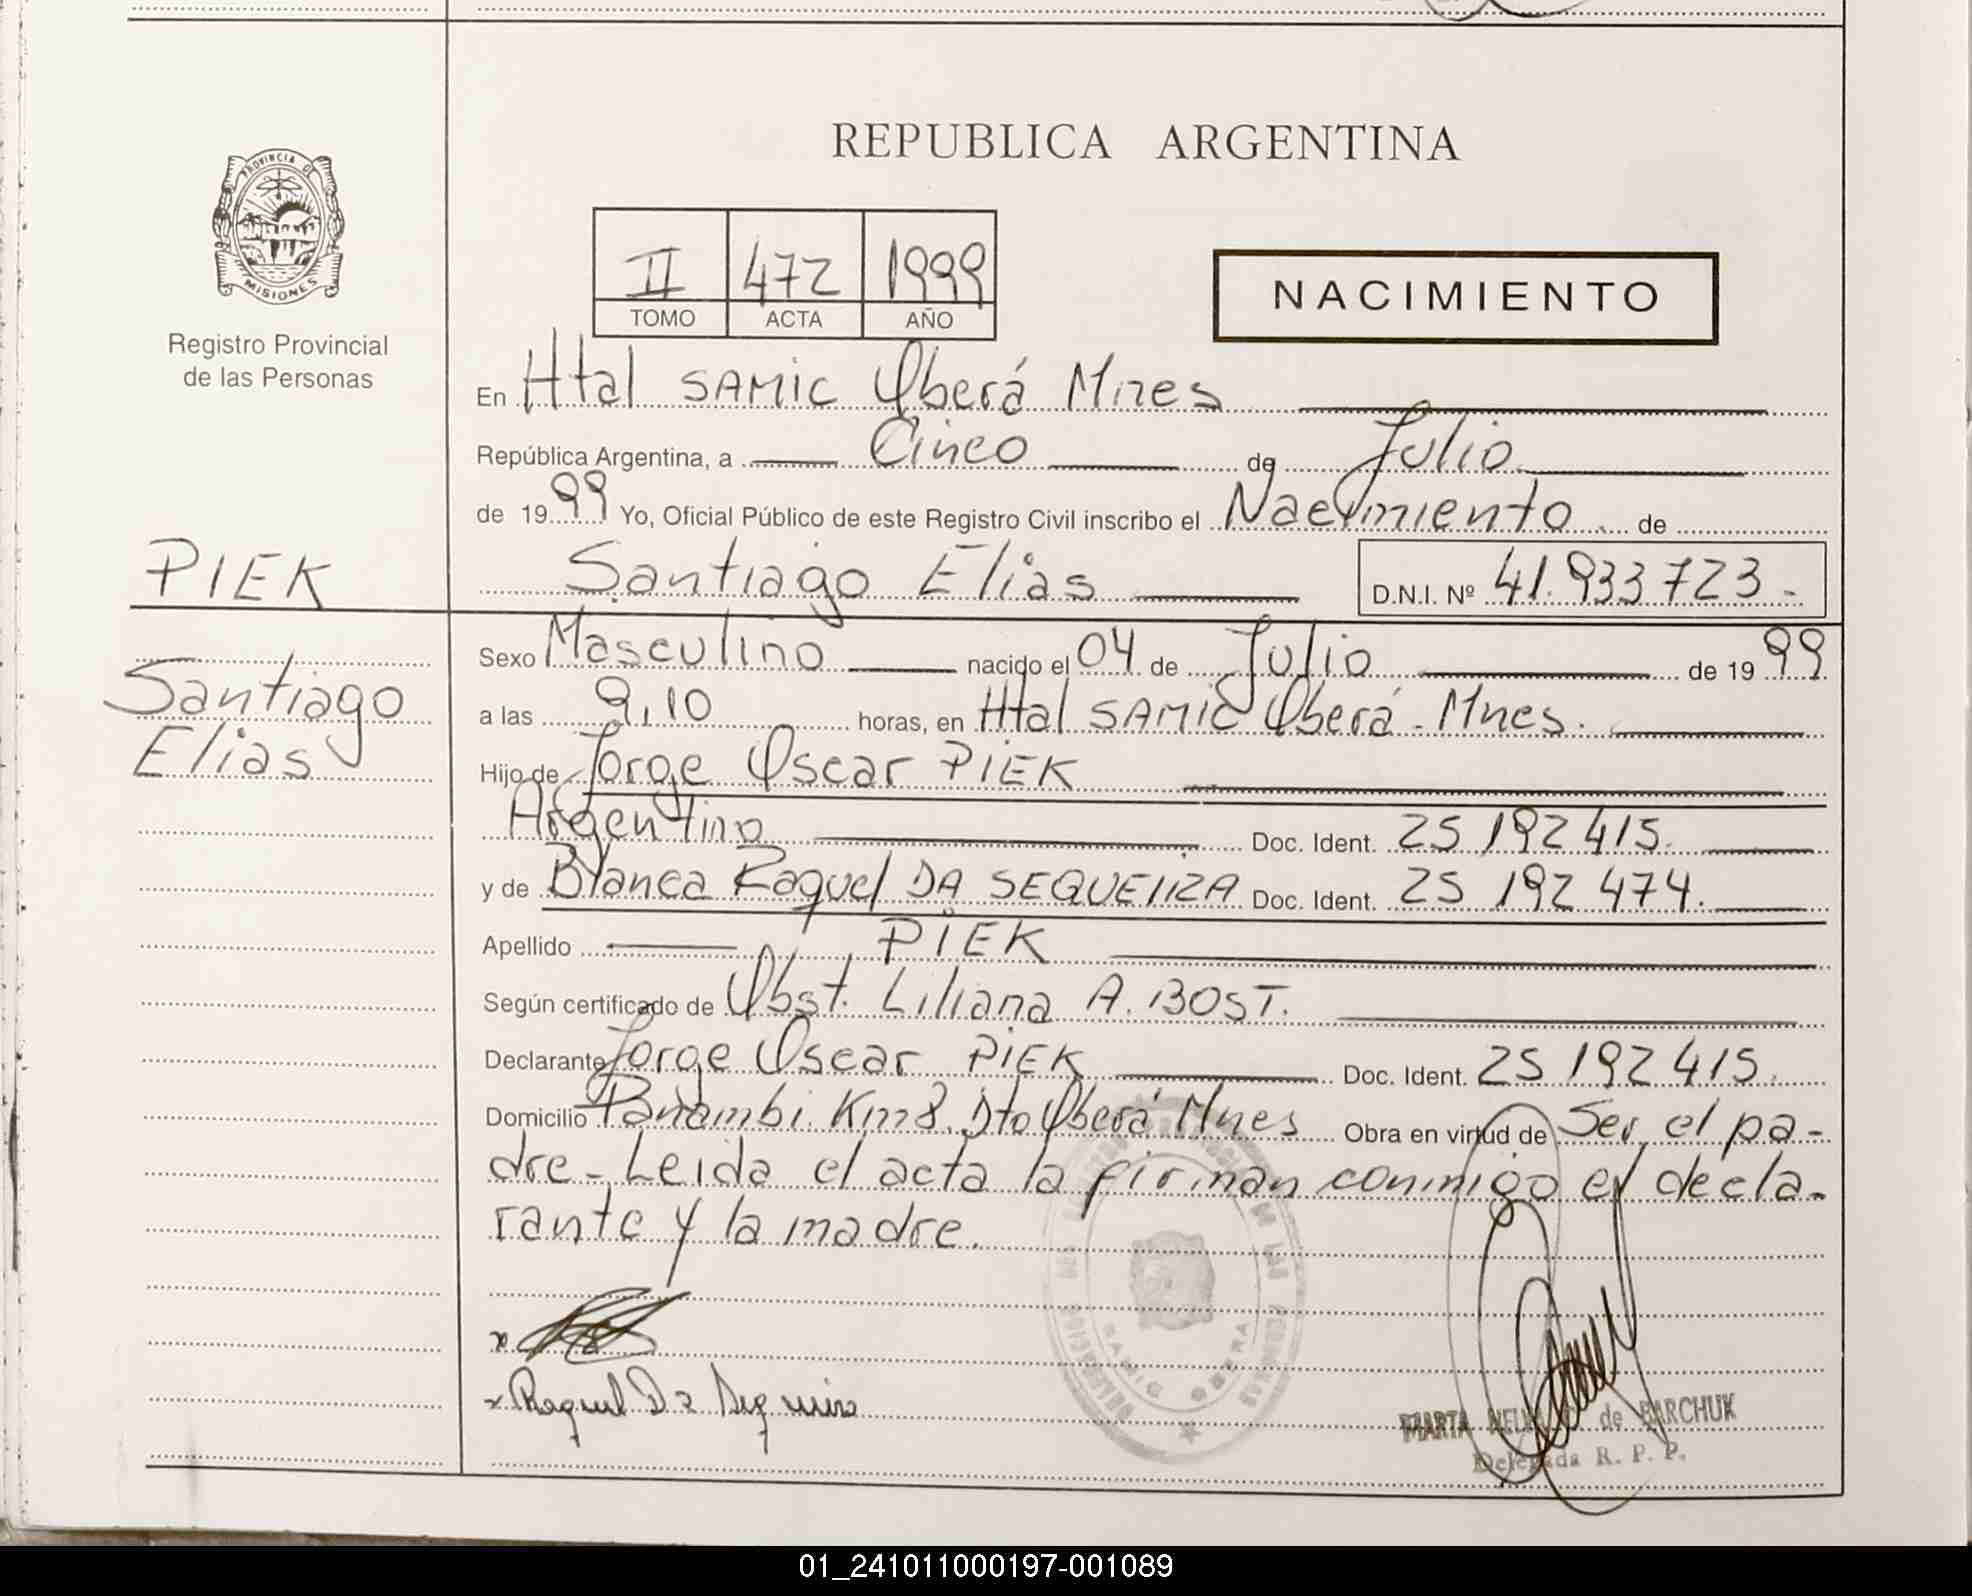 REPUBLICA ARGENTINA
PROVINCIA DE
MISIONES
Registro Provincial
de las Personas
II 472 1999
TOMO ACTA AÑO
NACIMIENTO
En Htal SAMIC Oberá Mnes
República Argentina, a Cinco de Julio
de 1999 Yo, Oficial Público de este Registro Civil inscribo el Nacimiento de
PIEK
Santiago Elias D.N.I. Nº 41.933723.-
Santiago
Elias
Sexo Masculino nacido el 04 de Julio de 1999
a las 9,10 horas, en Htal SAMIC Oberá - Mnes.
Hijo de Jorge Oscar PIEK
Argentino Doc. Ident. 25 192 415.
y de Blanca Raquel DA SEQUEIRA Doc. Ident. 25 192 474.
Apellido PIEK
Según certificado de Obst. Liliana A. BOST.
Declarante Jorge Oscar PIEK Doc. Ident. 25 192 415.
Domicilio Panambi Km 8. Dto Oberá Mnes Obra en virtud de Ser el pa-
dre - Leida el acta la firman conmigo el decla-
rante y la madre.
x
x Raquel Da Sequeira
MARTA de BARCHUK
Delegada R. P. P.
01_241011000197-001089